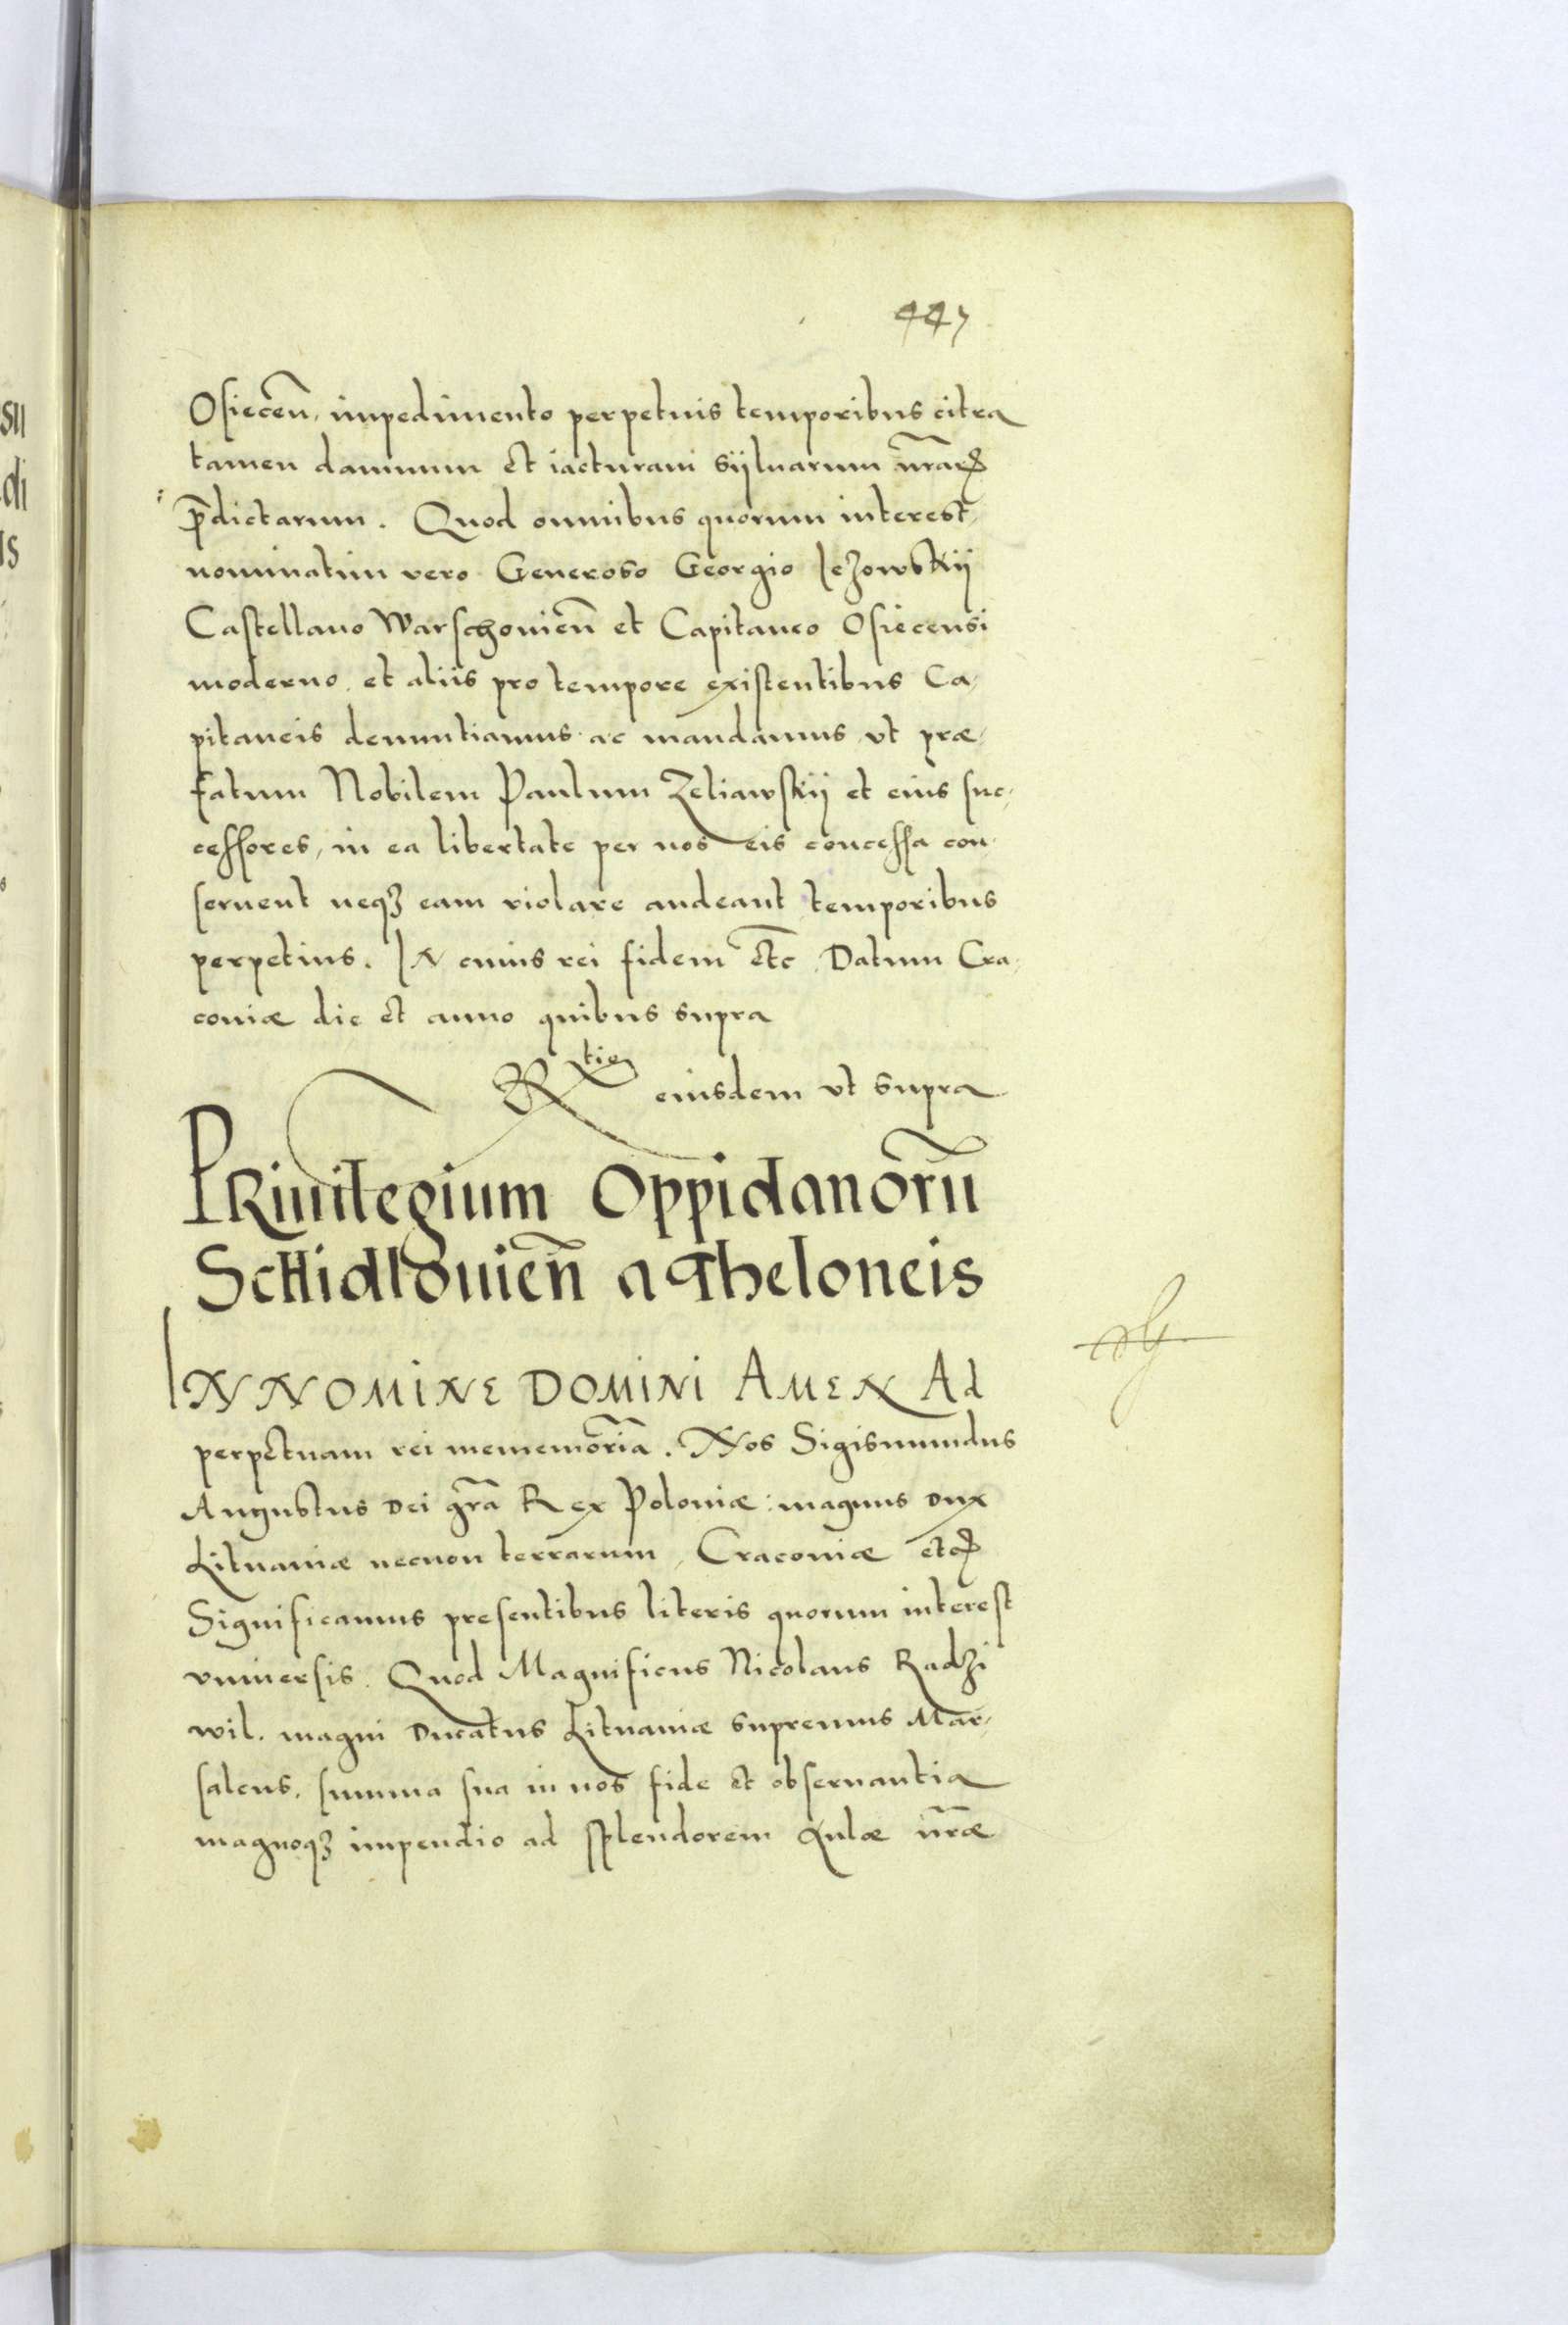 447
Osiecen̄, impedimento perpetuis temporibus citra
tamen damnum et iacturam sÿluarum nr̄arꝝ
p̄dictarum. Quod omnibus quorum interest,
nominatim vero Generoso Georgio Iezowskÿ
Castellano Warschouien̄ et Capitaneo Osiecensi
moderno, et aliis pro tempore existentibus Ca-
pitaneis denuntiamus ac mandamus, vt præ-
fatum Nobilem Paulum Zeliawskÿ et eius suc-
cessores, in ea libertate per nos eis concessa con-
seruent neqꝫ eam violare audeant temporibus
perpetius. In cuius rei fidem etc̄ Datum Cra-
couiæ die et anno quibus supra
Rtio eiusdem vt supra
PRiuilegium Oppidanorū
Schidlouien̄ a Theloneis
IN NOMINE DOMINI AMEN Ad
perpetuam rei mememoriā. Nos Sigismundus
Augustus Dei gr̄a Rex Poloniæ: magnus Dux
Lituaniæ necnon terrarum, Cracouiæ etcꝝ
Significamus presentibus literis quorum interest
vniuersis. Quod Magnificus Nicolaus Radzi
wil. magni Ducatus Lituaniæ supremus Mar-
salcus, summa sua in nos fide et obseruantia
magnoqꝫ impendio ad splendorem Aulæ nr̄æ